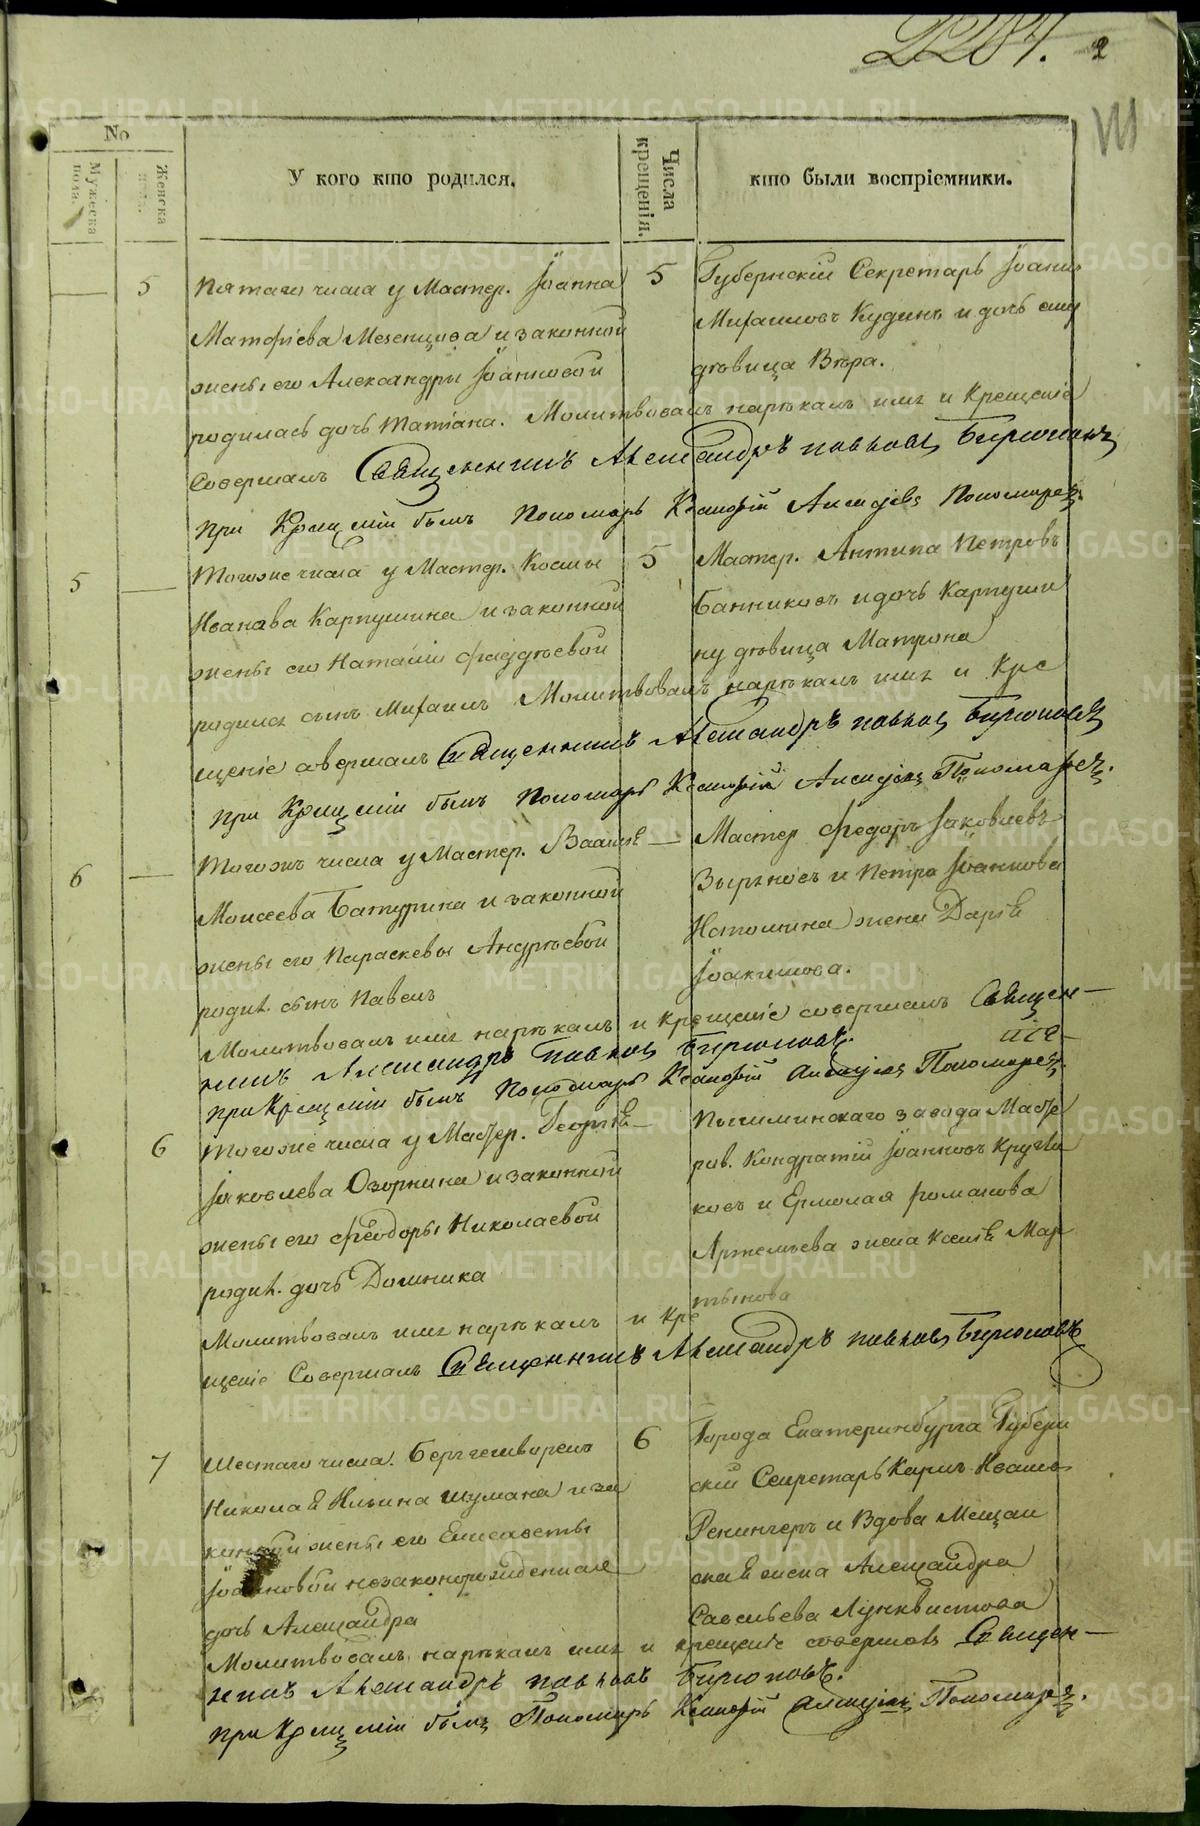 2
No
Мужеска пола.
Женска пола.
У кого кто родился.
Числа крещенія.
кто были воспріемники.
5
Пятаго числа у Мастер. Іоанна
Матфіева Мезенцова и законной
жены его Александры Іоанновой
родилась дочь Татіана. Молитвовалъ нарѣкалъ имя и Крещеніе
совершалъ Священникъ Александръ Павловъ Бирюковъ
При Крещеніи былъ Пономарь Пономаревъ.
5
Губернскій Секретарь Іоаннъ
Михаиловъ Кудинъ и дочь ему
дѣвица Вѣра.
5
Тогоже числа у Мастер. Космы
Иванова Карпушина и законной
жены его Наталіи Фаддѣевой
родился сынъ Михаилъ Молитвовалъ нарѣкалъ имя и Кре
щеніе совершалъ Священникъ Александръ Павловъ Бирюковъ
При Крещеніи былъ Пономарь Пономаревъ.
5
Мастер. Антипа Петровъ
Банниковъ и дочь Карпуши
ну дѣвица Матрона
6
Тогожъ числа у Мастер.
Моисеева Батурина и законной
жены его Параскевы Андрѣевой
родил. сынъ Павелъ
Молитвовалъ имя нарѣкалъ и крещеніе совершалъ Священ-
никъ Александръ Павловъ Бирюковъ.
При Крещеніи былъ Пономарь Пономаревъ.
Мастер Федоръ Іаковлевъ
Зыряновъ и Петра Іоаннова
жена Дарія
Іоакимова.
6
Тогоже числа у Мастер. Георгія
Іаковлева Озорнина и законной
жены его Феодоры Николаевой
родил. дочь Домника
Молитвовалъ имя нарѣкалъ и Кре
щеніе Совершалъ Священникъ Александръ Павловъ Бирюковъ
Пышминскаго завода Масте
ров. Кондратій Іоанновъ Кругля
ковъ и Ермолая Романова
Артемьева жена Ксенія Мар
тынова
7
Шестаго числа. Берггешворенъ
Николая Ильина Шумана и за
конной жены его Елисаветы
Іоанновой незаконорожденная
дочь Александра
Молитвовалъ, нарѣкалъ имя и крещеніе совершалъ Священ-
никъ Александръ Павловъ Бирюковъ.
При Крещеніи былъ Пономарь Пономаревъ.
6
Города Екатеринбурга Губерн
скій Секретарь Карлъ Ивановъ
и Вдова Мещан
ская жена Александра
Савельева Лунквистова
METRIKI.GASO-URAL.RU